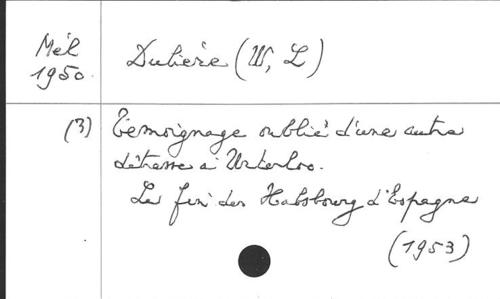 Mél
1950.
Dulière (W, L)
(3) Témoignage oublié d'une autre
détresse à Waterloo.
La fin des Habsbourg d'Espagne
(1953)